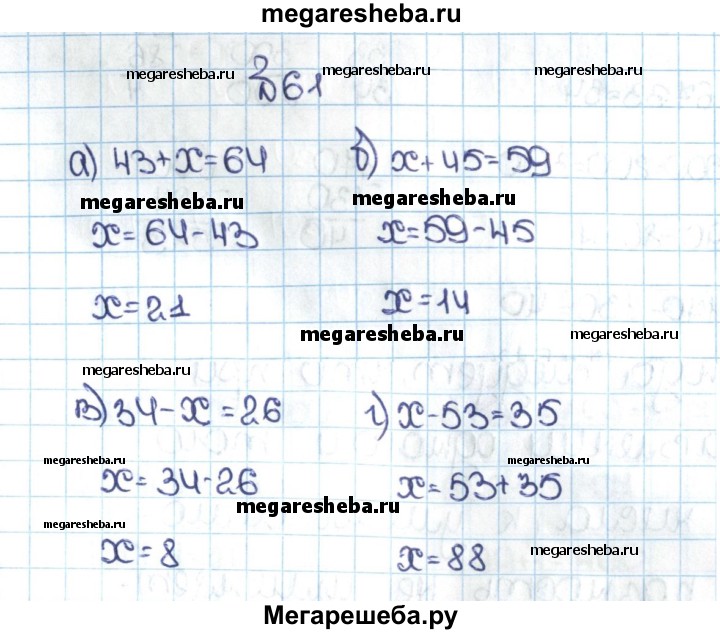 megaresheba.ru
megaresheba.ru megaresheba.ru megaresheba.ru
№61
а) 43+x=64 б) x+45=59
megaresheba.ru megaresheba.ru
x=64-43 x=59-45
x=21 x=14
megaresheba.ru megaresheba.ru
megaresheba.ru
в) 34-x=26 г) x-53=35
megaresheba.ru megaresheba.ru
x=34-26 x=53+35
megaresheba.ru
megaresheba.ru
x=8 x=88
megaresheba.ru
Мегарешеба.ру